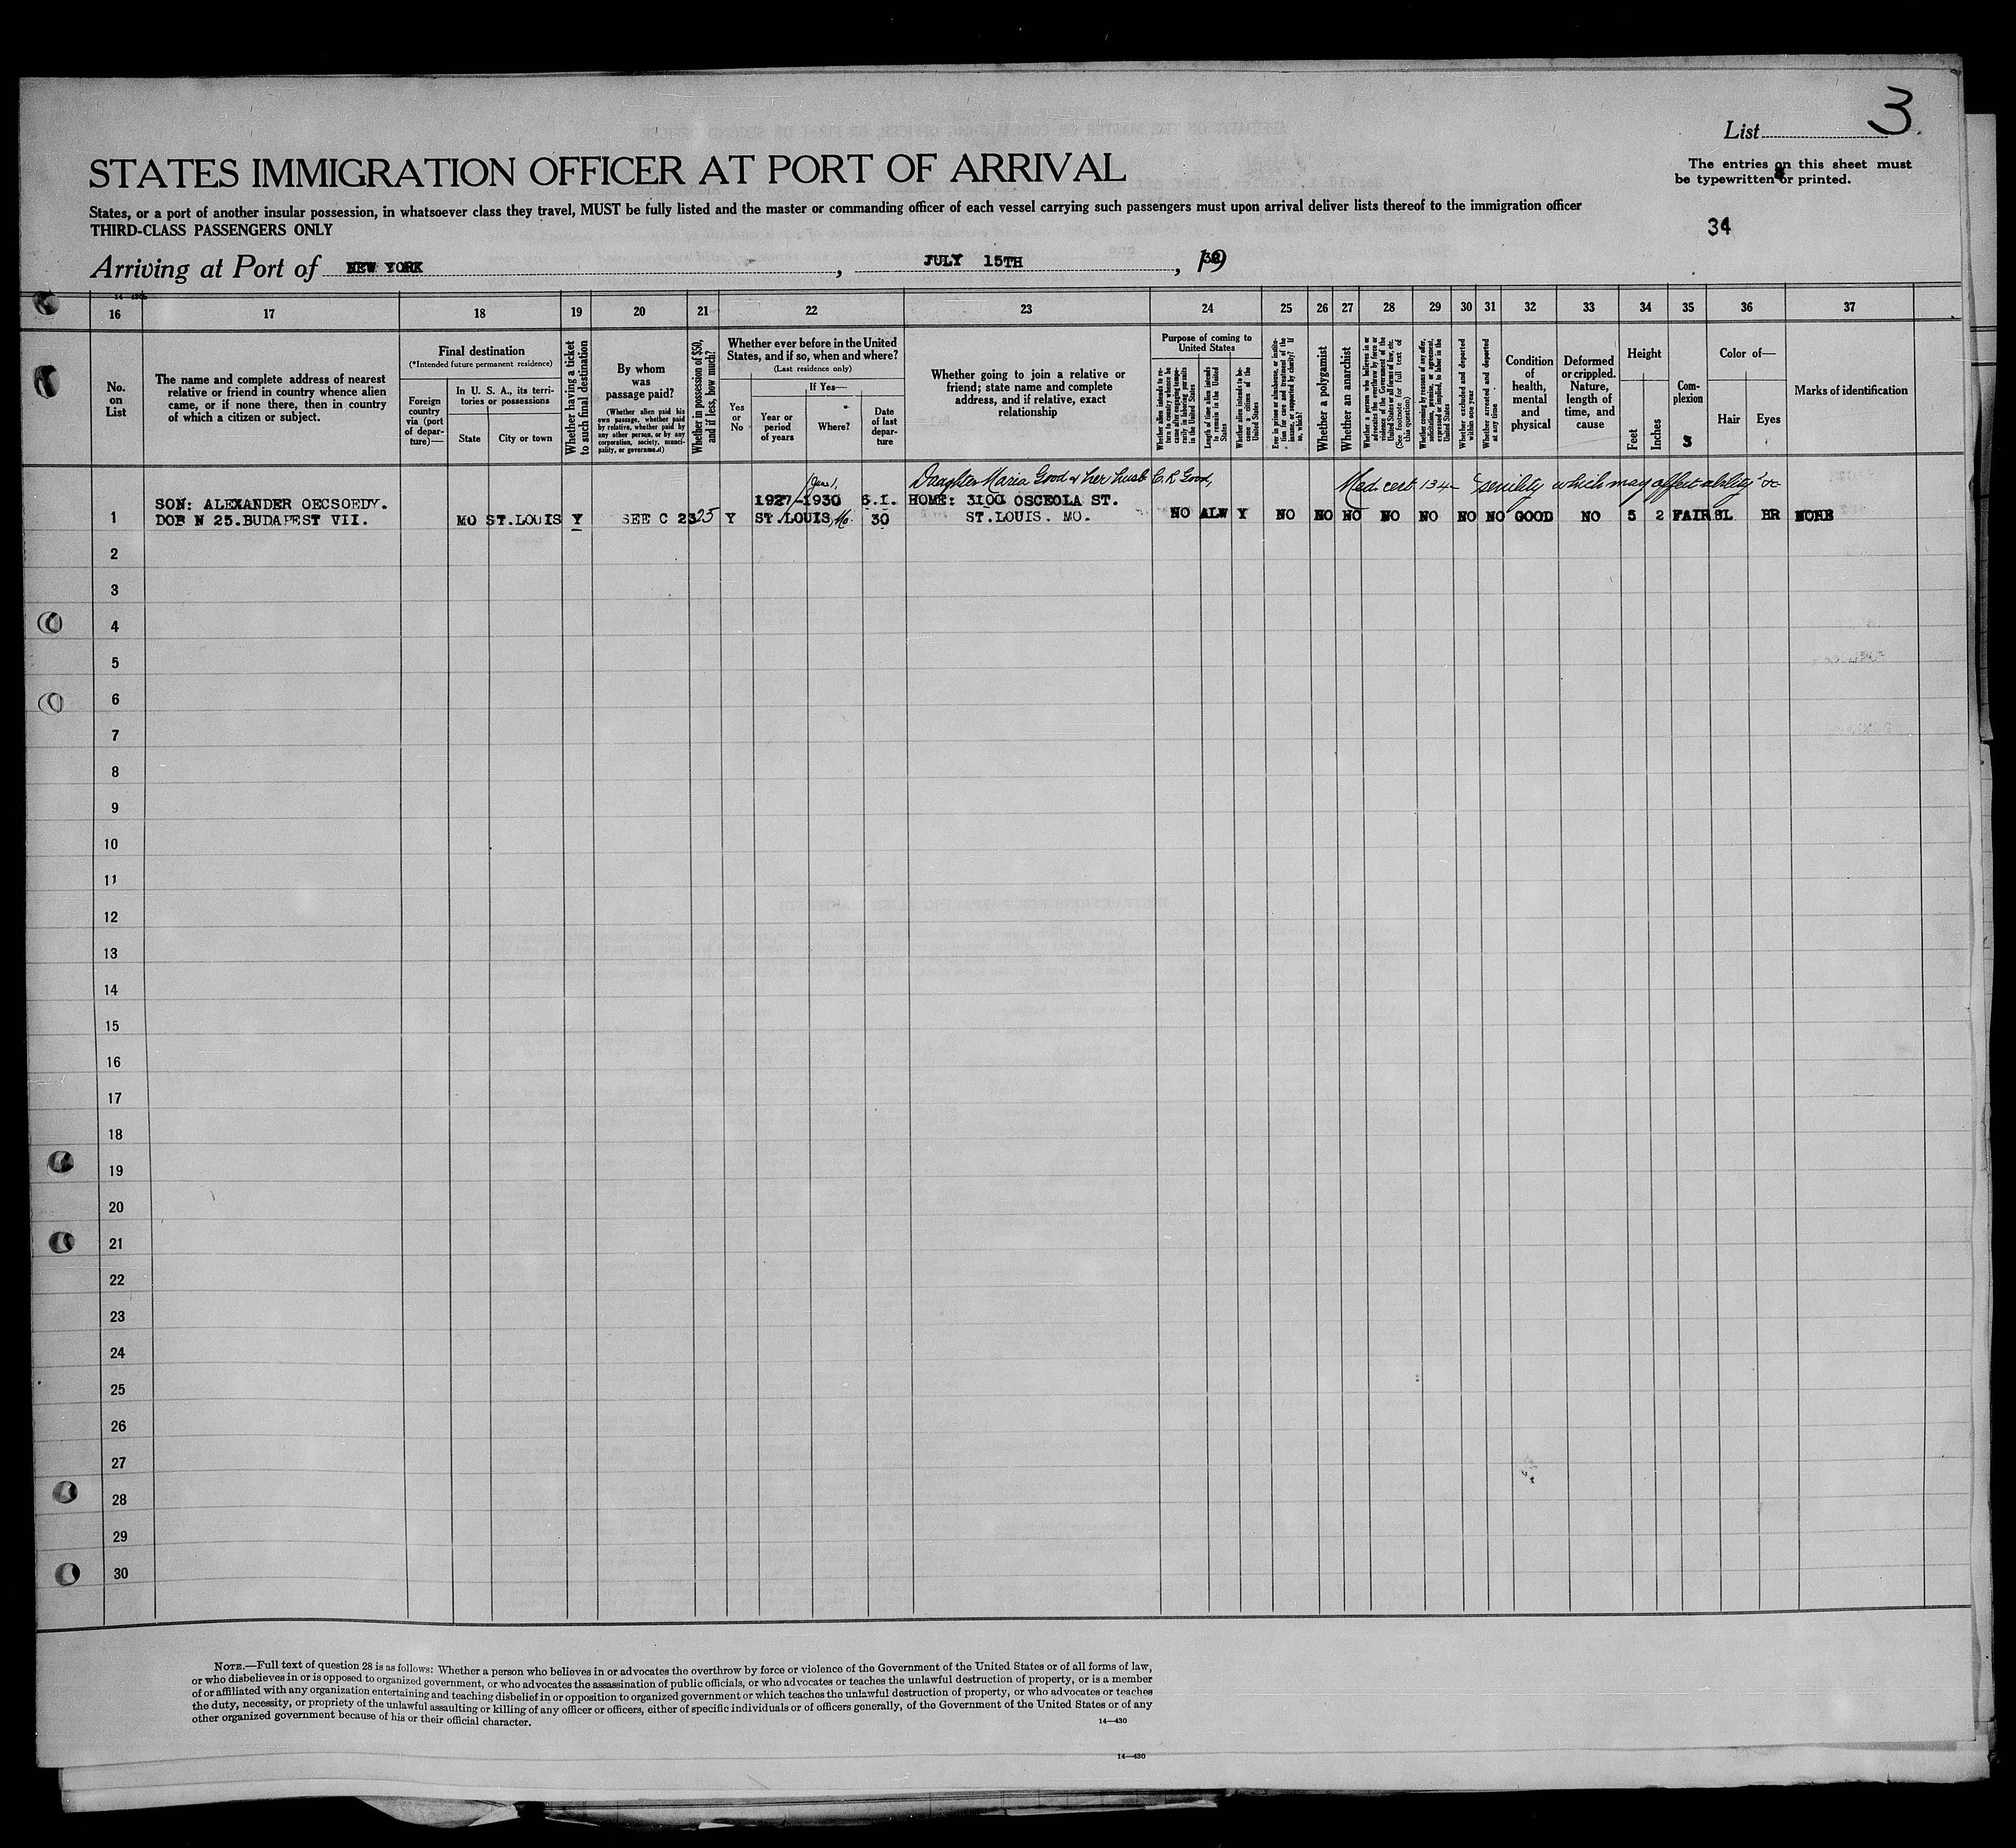 List 3
STATES IMMIGRATION OFFICER AT PORT OF ARRIVAL
The entries on this sheet must
be typewritten or printed.
States, or a port of another insular possession, in whatsoever class they travel, MUST be fully listed and the master or commanding officer of each vessel carrying such passengers must upon arrival deliver lists thereof to the immigration officer
THIRD-CLASS PASSENGERS ONLY
34
Arriving at Port of NEW YORK, JULY 15TH, 19
16 17 18 19 20 21 22 23 24 25 26 27 28 29 30 31 32 33 34 35 36 37
No.
on
List
The name and complete address of nearest
relative or friend in country whence alien
came, or if none there, then in country
of which a citizen or subject.
Final destination
(*Intended future permanent residence)
Foreign
country
via (port
of depar-
ture)—
In U. S. A., its terri-
tories or possessions
State
City or town
Whether having a ticket
to such final destination
By whom
was
passage paid?
(Whether alien paid his
own passage, whether paid
by relative, whether paid by
any other person, or by any
corporation, society, munici-
pality, or government)
Whether in possession of $50,
and if less, how much?
Whether ever before in the United
States, and if so, when and where?
(Last residence only)
Yes
or
No
If Yes—
Year or
period
of years
Where?
Date
of last
depar-
ture
Whether going to join a relative or
friend; state name and complete
address, and if relative, exact
relationship
Purpose of coming to
United States
Whether alien intends to re-
turn to country whence he
came after engaging tempo-
rarily in laboring pursuits
in the United States
Length of time alien intends
to remain in the United
States
Whether alien intends to be-
come a citizen of the
United States
Ever in prison or almshouse, or institu-
tion for care and treatment of the
insane, or supported by charity? If
so, which?
Whether a polygamist
Whether an anarchist
Whether a person who believes in or
advocates the overthrow by force or
violence of the Government of the
United States or all forms of law, etc.
(See footnote for full text of
this question)
Whether coming by reasons of any offer,
solicitation, promise, or agreement,
expressed or implied, to labor in the
United States
Whether excluded and deported
within one year
Whether arrested and deported
at any time
Condition
of
health,
mental
and
physical
Deformed
or crippled.
Nature,
length of
time, and
cause
Height
Feet
Inches
Com-
plexion
Color of—
Hair
Eyes
Marks of identification
June 1, Daughter Maria Good & her husb C. R. Good, Med cert 134- "senility which may affect ability"
SON: ALEXANDER OECSOEDY. 1927-1930 6.1. HOME: 3100 OSCEOLA ST.
1 DOB N 25.BUDAPEST VII. MO ST.LOUIS Y SEE C 23 25 Y ST.LOUIS, Mo. 30 ST.LOUIS. MO. NO ALW Y NO NO NO NO NO NO NO GOOD NO 5 2 FAIR BR NONE
2
3
4
5
6
7
8
9
10
11
12
13
14
15
16
17
18
19
20
21
22
23
24
25
26
27
28
29
30
NOTE.—Full text of question 28 is as follows: Whether a person who believes in or advocates the overthrow by force or violence of the Government of the United States or of all forms of law,
or who disbelieves in or is opposed to organized government, or who advocates the assassination of public officials, or who advocates or teaches the unlawful destruction of property, or is a member
of or affiliated with any organization entertaining and teaching disbelief in or opposition to organized government or which teaches the unlawful destruction of property, or who advocates or teaches
the duty, necessity, or propriety of the unlawful assaulting or killing of any officer or officers, either of specific individuals or of officers generally, of the Government of the United States or of any
other organized government because of his or their official character.
14—430
14—430